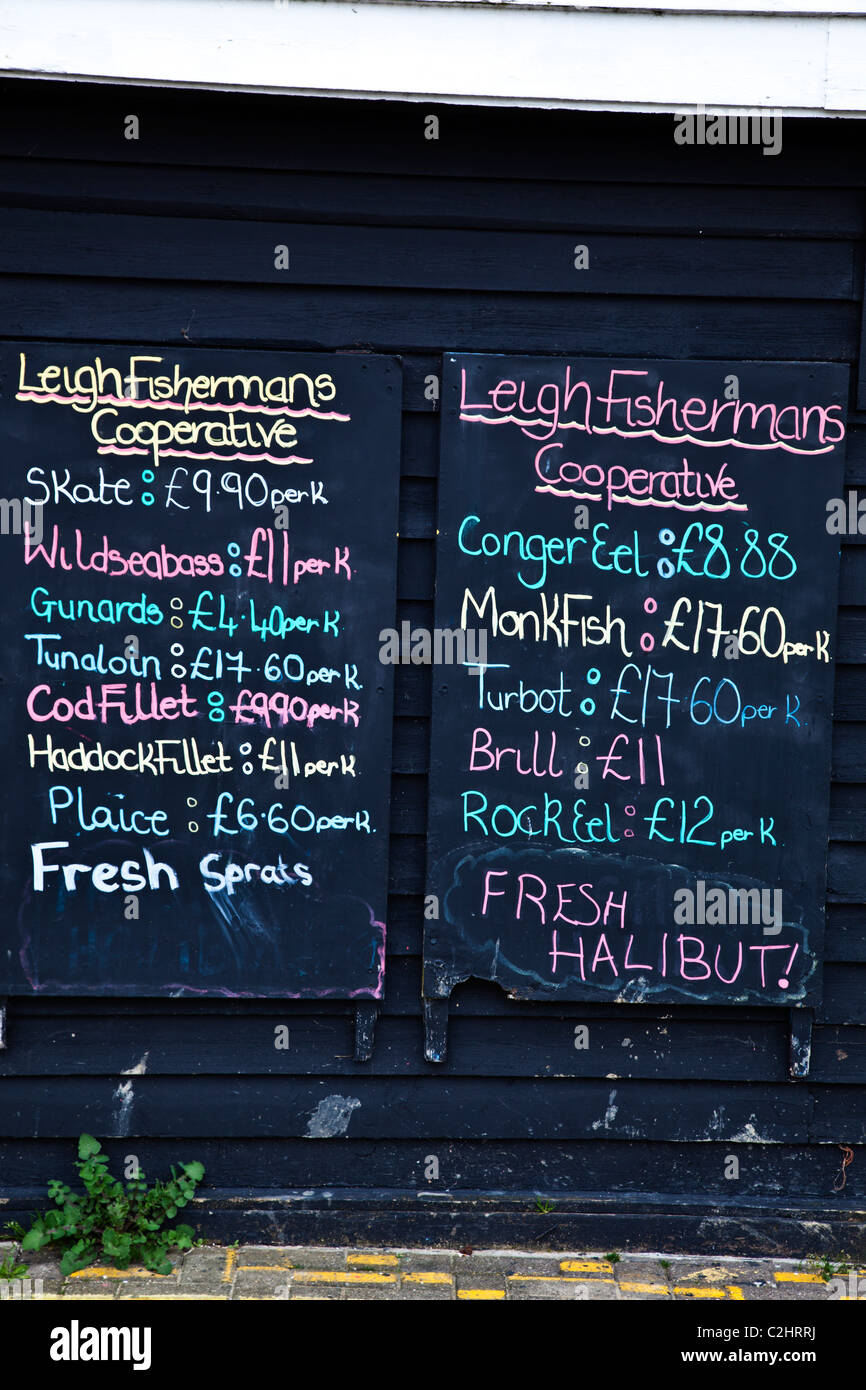 Leigh Fishermans
Cooperative
Skate : £9.90 per K
Wild seabass : £11 per K
Gunards : £4.40 per K
Tuna loin : £17.60 per K
Cod Fillet : £9.90 per K
Haddock Fillet : £11 per K
Plaice : £6.60 per K
Fresh Sprats
Leigh Fishermans
Cooperative
Conger Eel : £8.88
MonkFish : £17.60 per K
Turbot : £17.60 per K
Brill : £11
Rock Eel : £12 per K
FRESH
HALIBUT!
alamy
Image ID: C2HRRJ
www.alamy.com